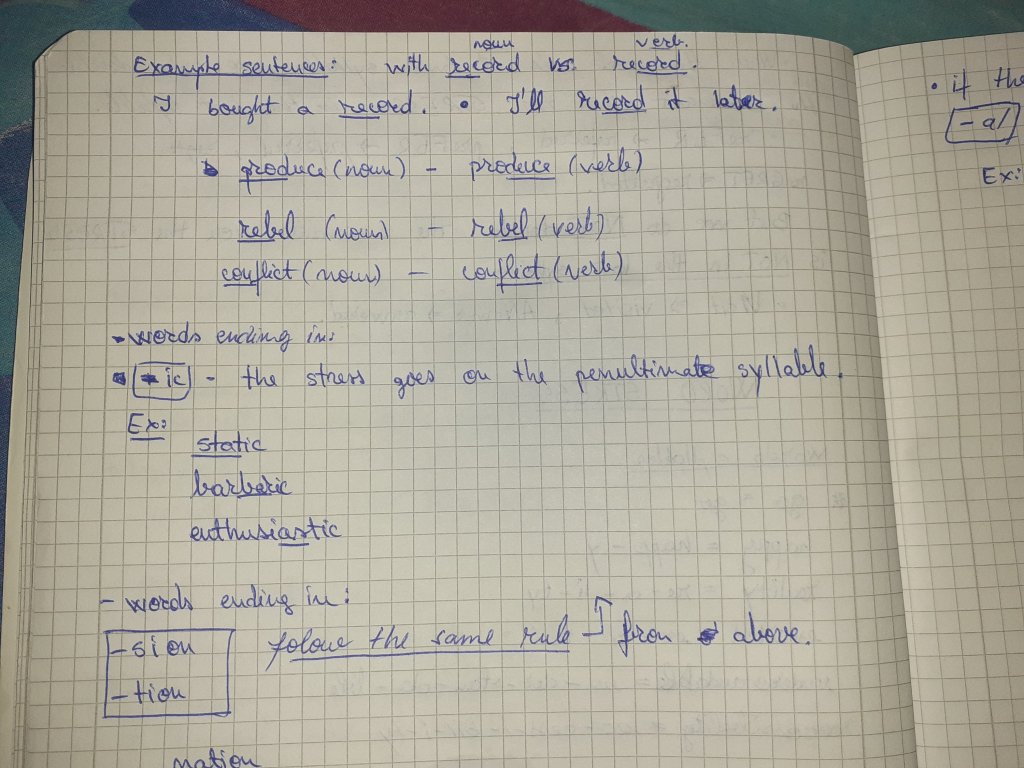 noun verb.
Example sentences: with record vs. record.
I bought a record. • I'll record it later.
produce (noun) - produce (verb)
rebel (noun) - rebel (verb)
conflict (noun) - conflict (verb)
- words ending in:
-ic - the stress goes on the penultimate syllable.
Ex:
static
barbaric
enthusiastic
- words ending in:
-sion
-tion
folow the same rule from above.
nation
• if the
-al
Ex: